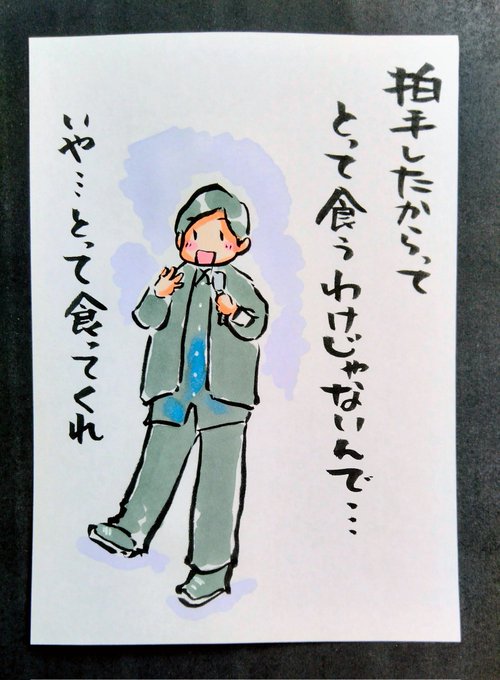 拍手したからって
とって食うわけじゃないんで…
いや…とって食ってくれ